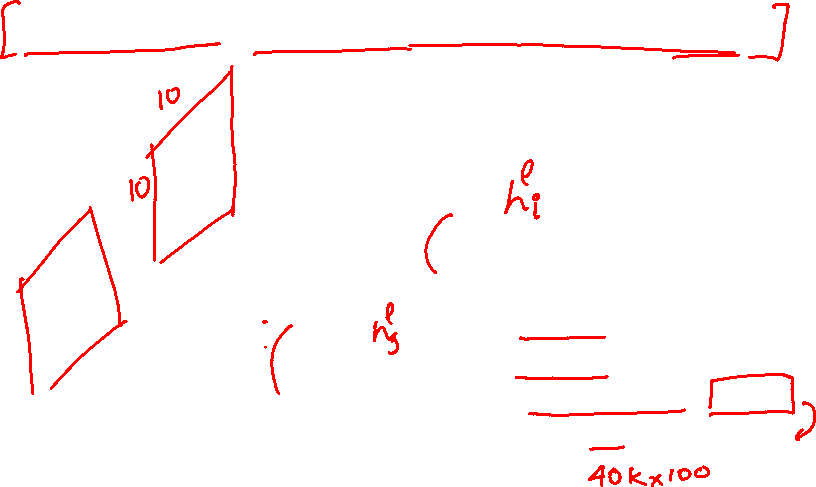 10
10
h_i^l
h_s^l
40K×100